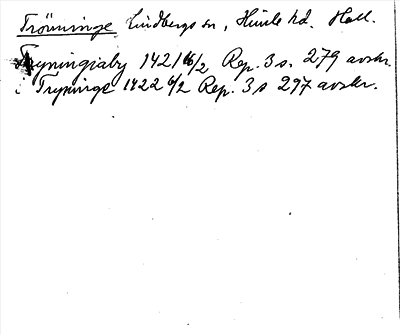 Trönninge Lindbergs sn, Himle hd. Hall.
Tryningiaby 1421 16/2 Rep. 3 s. 279 avskr.
i Tryninge 1422 6/2 Rep. 3 s 297 avskr.